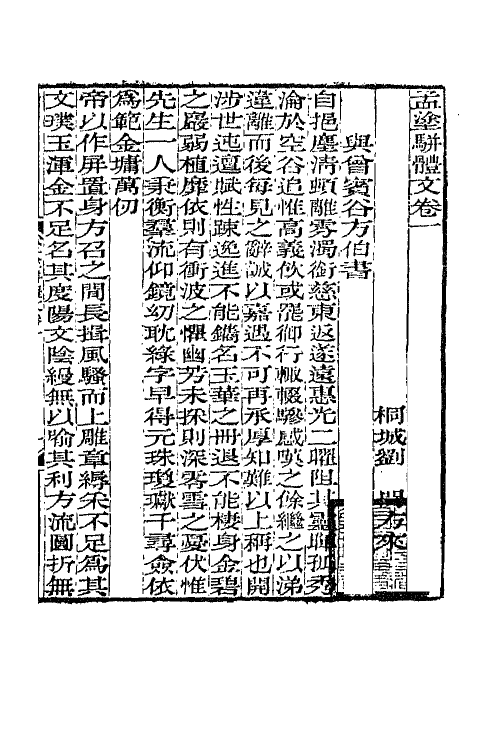 孟塗駢體文卷一
桐城劉 開 方來
與曾賓谷方伯書
自挹塵清頓離霧濁銜慈東返遂遠惠光二曜阻其
淪於空谷追惟高義佽或罷御行輒輟驂感嘆之餘繼之以涕
違離而後每見之辭誠以嘉遇不可再承厚知難以上稱也開
涉世迍邅賦性疎逸進不能鐫名玉華之冊退不能棲身金碧
之巖弱植靡依則有衝波之懼幽芳未採則深零雪之憂伏惟
先生一人秉衡羣流仰鏡幼耽綠字早得元珠瓊嶽千尋僉依
爲範金墉萬仞
帝以作屏置身方召之間長揖風騷而上雕章縟采不足爲其
文璞玉渾金不足名其度陽文陰縵無以喻其利方流圓折無